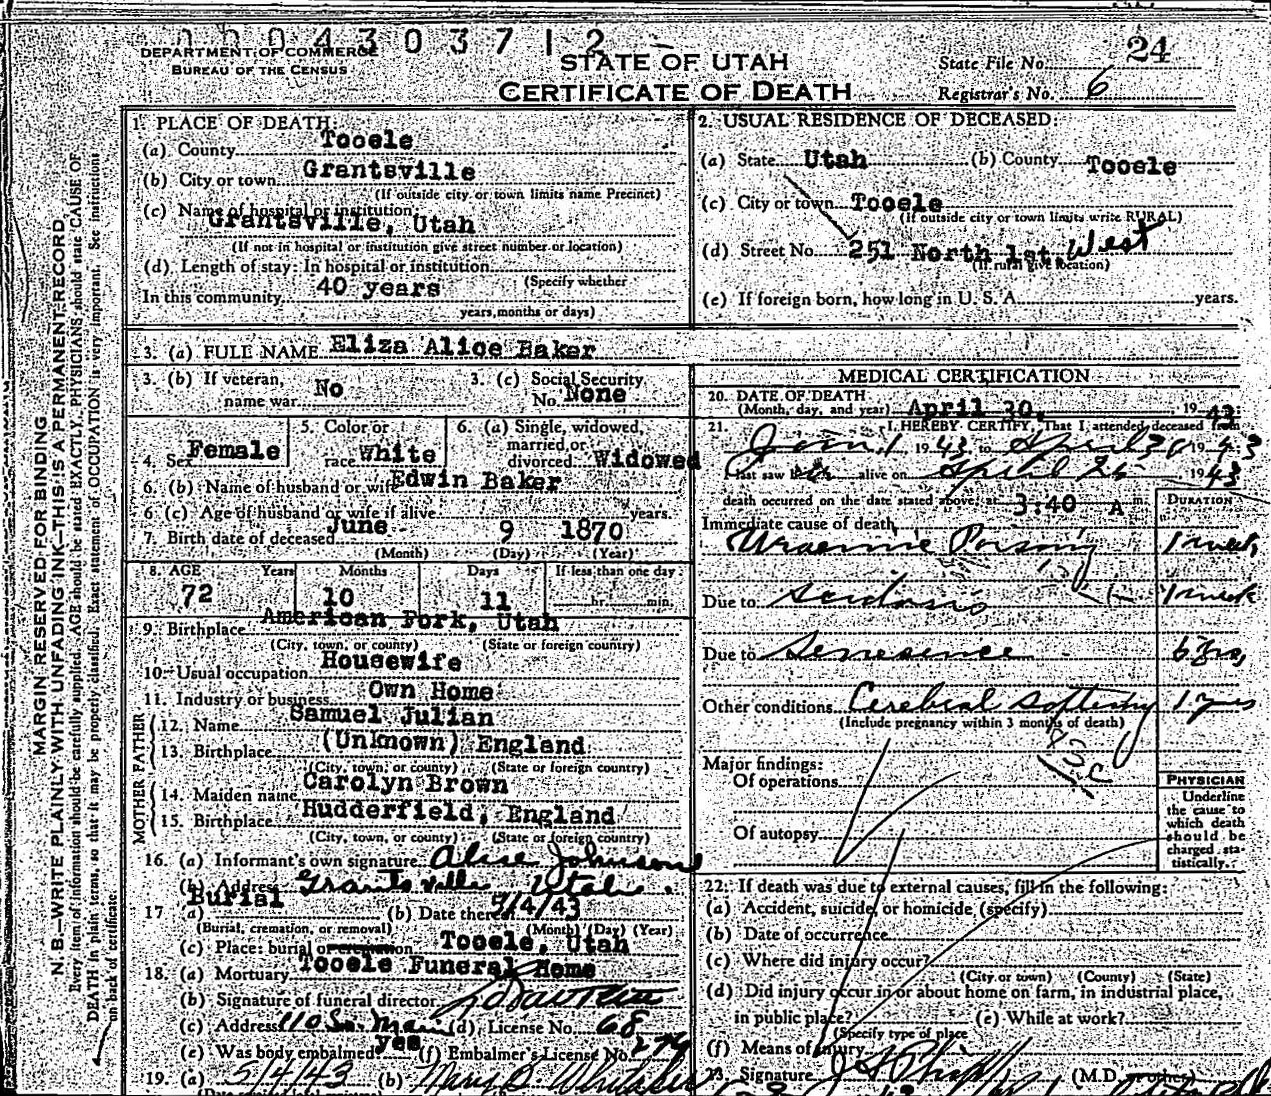 0 0 4 3 0 3 7 1 2
DEPARTMENT OF COMMERCE
BUREAU OF THE CENSUS
STATE OF UTAH
CERTIFICATE OF DEATH
State File No. 24
Registrar's No. 6
MARGIN RESERVED FOR BINDING
N. B.—WRITE PLAINLY WITH UNFADING INK—THIS IS A PERMANENT RECORD
Every item of information should be carefully supplied. AGE should be stated EXACTLY. PHYSICIANS should state CAUSE OF
DEATH in plain terms, so that it may be properly classified. Exact statement of OCCUPATION is very important. See instructions
on back of certificate
1. PLACE OF DEATH:
(a) County Tooele
(b) City or town Grantsville
(If outside city or town limits name Precinct)
(c) Name of hospital or institution
Grantsville, Utah
(If not in hospital or institution give street number or location)
(d) Length of stay: In hospital or institution
(Specify whether
In this community 40 years
years, months or days)
2. USUAL RESIDENCE OF DECEASED:
(a) State Utah (b) County Tooele
(c) City or town Tooele
(If outside city or town limits write RURAL)
(d) Street No. 251 North 1st. West
(If rural give location)
(e) If foreign born, how long in U. S. A. years.
3. (a) FULL NAME Eliza Alice Baker
3. (b) If veteran, name war No
3. (c) Social Security No. None
4. Sex Female
5. Color or race White
6. (a) Single, widowed, married, or divorced Widowed
6. (b) Name of husband or wife Edwin Baker
6. (c) Age of husband or wife if alive years.
7. Birth date of deceased June 9 1870
(Month) (Day) (Year)
8. AGE Years Months Days If less than one day
72 10 11 hr. min.
9. Birthplace American Fork, Utah
(City, town, or county) (State or foreign country)
10. Usual occupation Housewife
11. Industry or business Own Home
FATHER
12. Name Samuel Julian
13. Birthplace (Unknown) England
(City, town, or county) (State or foreign country)
MOTHER
14. Maiden name Carolyn Brown
15. Birthplace Hudderfield, England
(City, town, or county) (State or foreign country)
16. (a) Informant's own signature Alice Johnson
(b) Address Grantsville Utah.
17 (a) Burial (b) Date thereof 5/4/43
(Burial, cremation, or removal) (Month) (Day) (Year)
(c) Place: burial or cremation Tooele, Utah
18. (a) Mortuary Tooele Funeral Home
(b) Signature of funeral director
(c) Address 110 So. Main (d) License No. 68
(e) Was body embalmed yes (f) Embalmer's License No. 279
19. (a) 5/4/43 (b) Mary B.
MEDICAL CERTIFICATION
20. DATE OF DEATH
(Month, day, and year) April 30, 19 43
21. I HEREBY CERTIFY, That I attended deceased from
Jan 1 19 43, to April 30 19 43
I last saw her alive on April 26 19 43
death occurred on the date stated above, at 3:40 A m.
DURATION
Immediate cause of death
Uraemic Poisong 1 week
Due to acidosis 1 week
Due to Senesence 6 yrs,
Other conditions Cerebral softeng
(Include pregnancy within 3 months of death)
Major findings:
Of operations
Of autopsy
PHYSICIAN
Underline
the cause to
which death
should be
charged sta-
tistically.
22. If death was due to external causes, fill in the following:
(a) Accident, suicide, or homicide (specify)
(b) Date of occurrence
(c) Where did injury occur?
(City or town) (County) (State)
(d) Did injury occur in or about home on farm, in industrial place,
in public place? (e) While at work?
(Specify type of place
(f) Means of injury
23. Signature (M.D. or other)